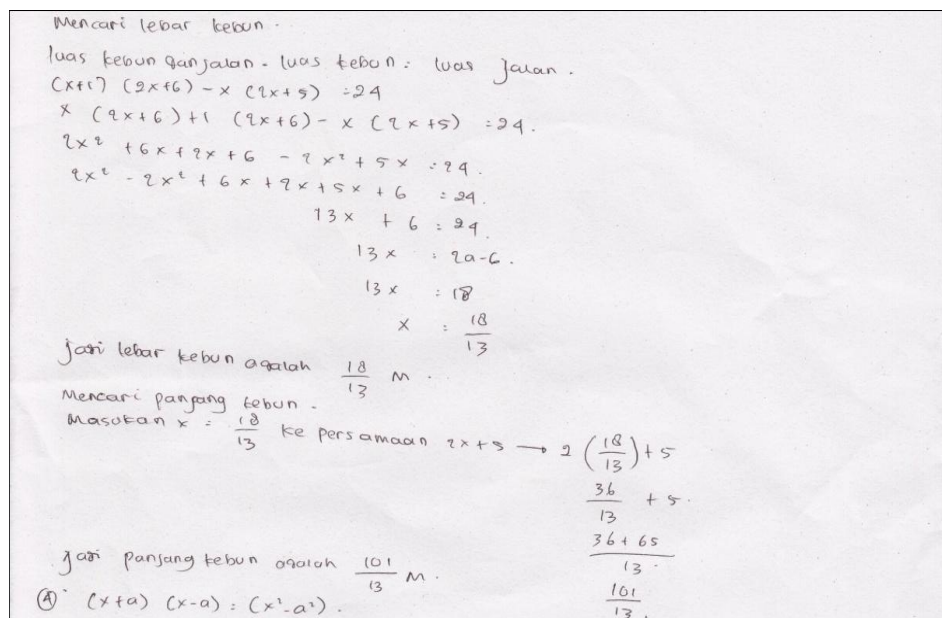 Mencari lebar kebun.
luas kebun dan jalan - luas kebun = luas jalan.
(x+1) (2x+6) - x (2x+5) = 24
x (2x+6) +1 (2x+6) - x (2x+5) = 24.
2x² + 6x + 2x + 6 - 2x² + 5x = 24.
2x² - 2x² + 6x + 2x + 5x + 6 = 24.
13x + 6 = 24.
13x = 24-6.
13x = 18
x = 18/13
Jadi lebar kebun adalah 18/13 M.
Mencari panjang kebun.
Masukan x = 18/13 ke persamaan 2x+5 → 2 (18/13) + 5
36/13 + 5.
36+65/13.
Jadi panjang kebun adalah 101/13 M.
101/13.
④ (x+a) (x-a) = (x²-a²).